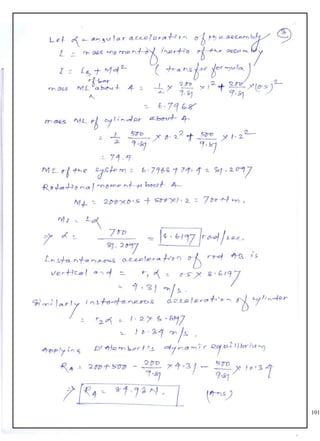 ③
Let α = angular acceleration of the assembly
I = mass moment of inertia of the assembly
I = IG + Md² (transfer formula)
mass MI of bar about A = 1/12 × 200/9.81 × 1² + 200/9.81 × (0.5)²
= 6.7968
mass MI of cylinder about A.
= 1/2 × 500/9.81 × 0.2² + 500/9.81 × 1.2²
= 74.4
MI of the system = 6.7968 + 74.4 = 81.2097
Rotational moment about A
Mt = 200×0.5 + 500×1.2 = 700 Nm.
Mt = Iα
⇒ α = 700/81.2097 = 8.6197 rad/sec.
Instantaneous acceleration of rod AB is
vertical and = r₁α = 0.5 × 8.6197
= 4.31 m/s.
Similarly instantaneous acceleration of cylinder
= r₂α = 1.2 × 8.6197
= 10.34 m/s.
Applying D'Alembert's dynamic equilibrium
RA = 200+500 - 200/9.81 × 4.31 - 500/9.81 × 10.34
⇒ RA = 84.93 N. (Ans)
101